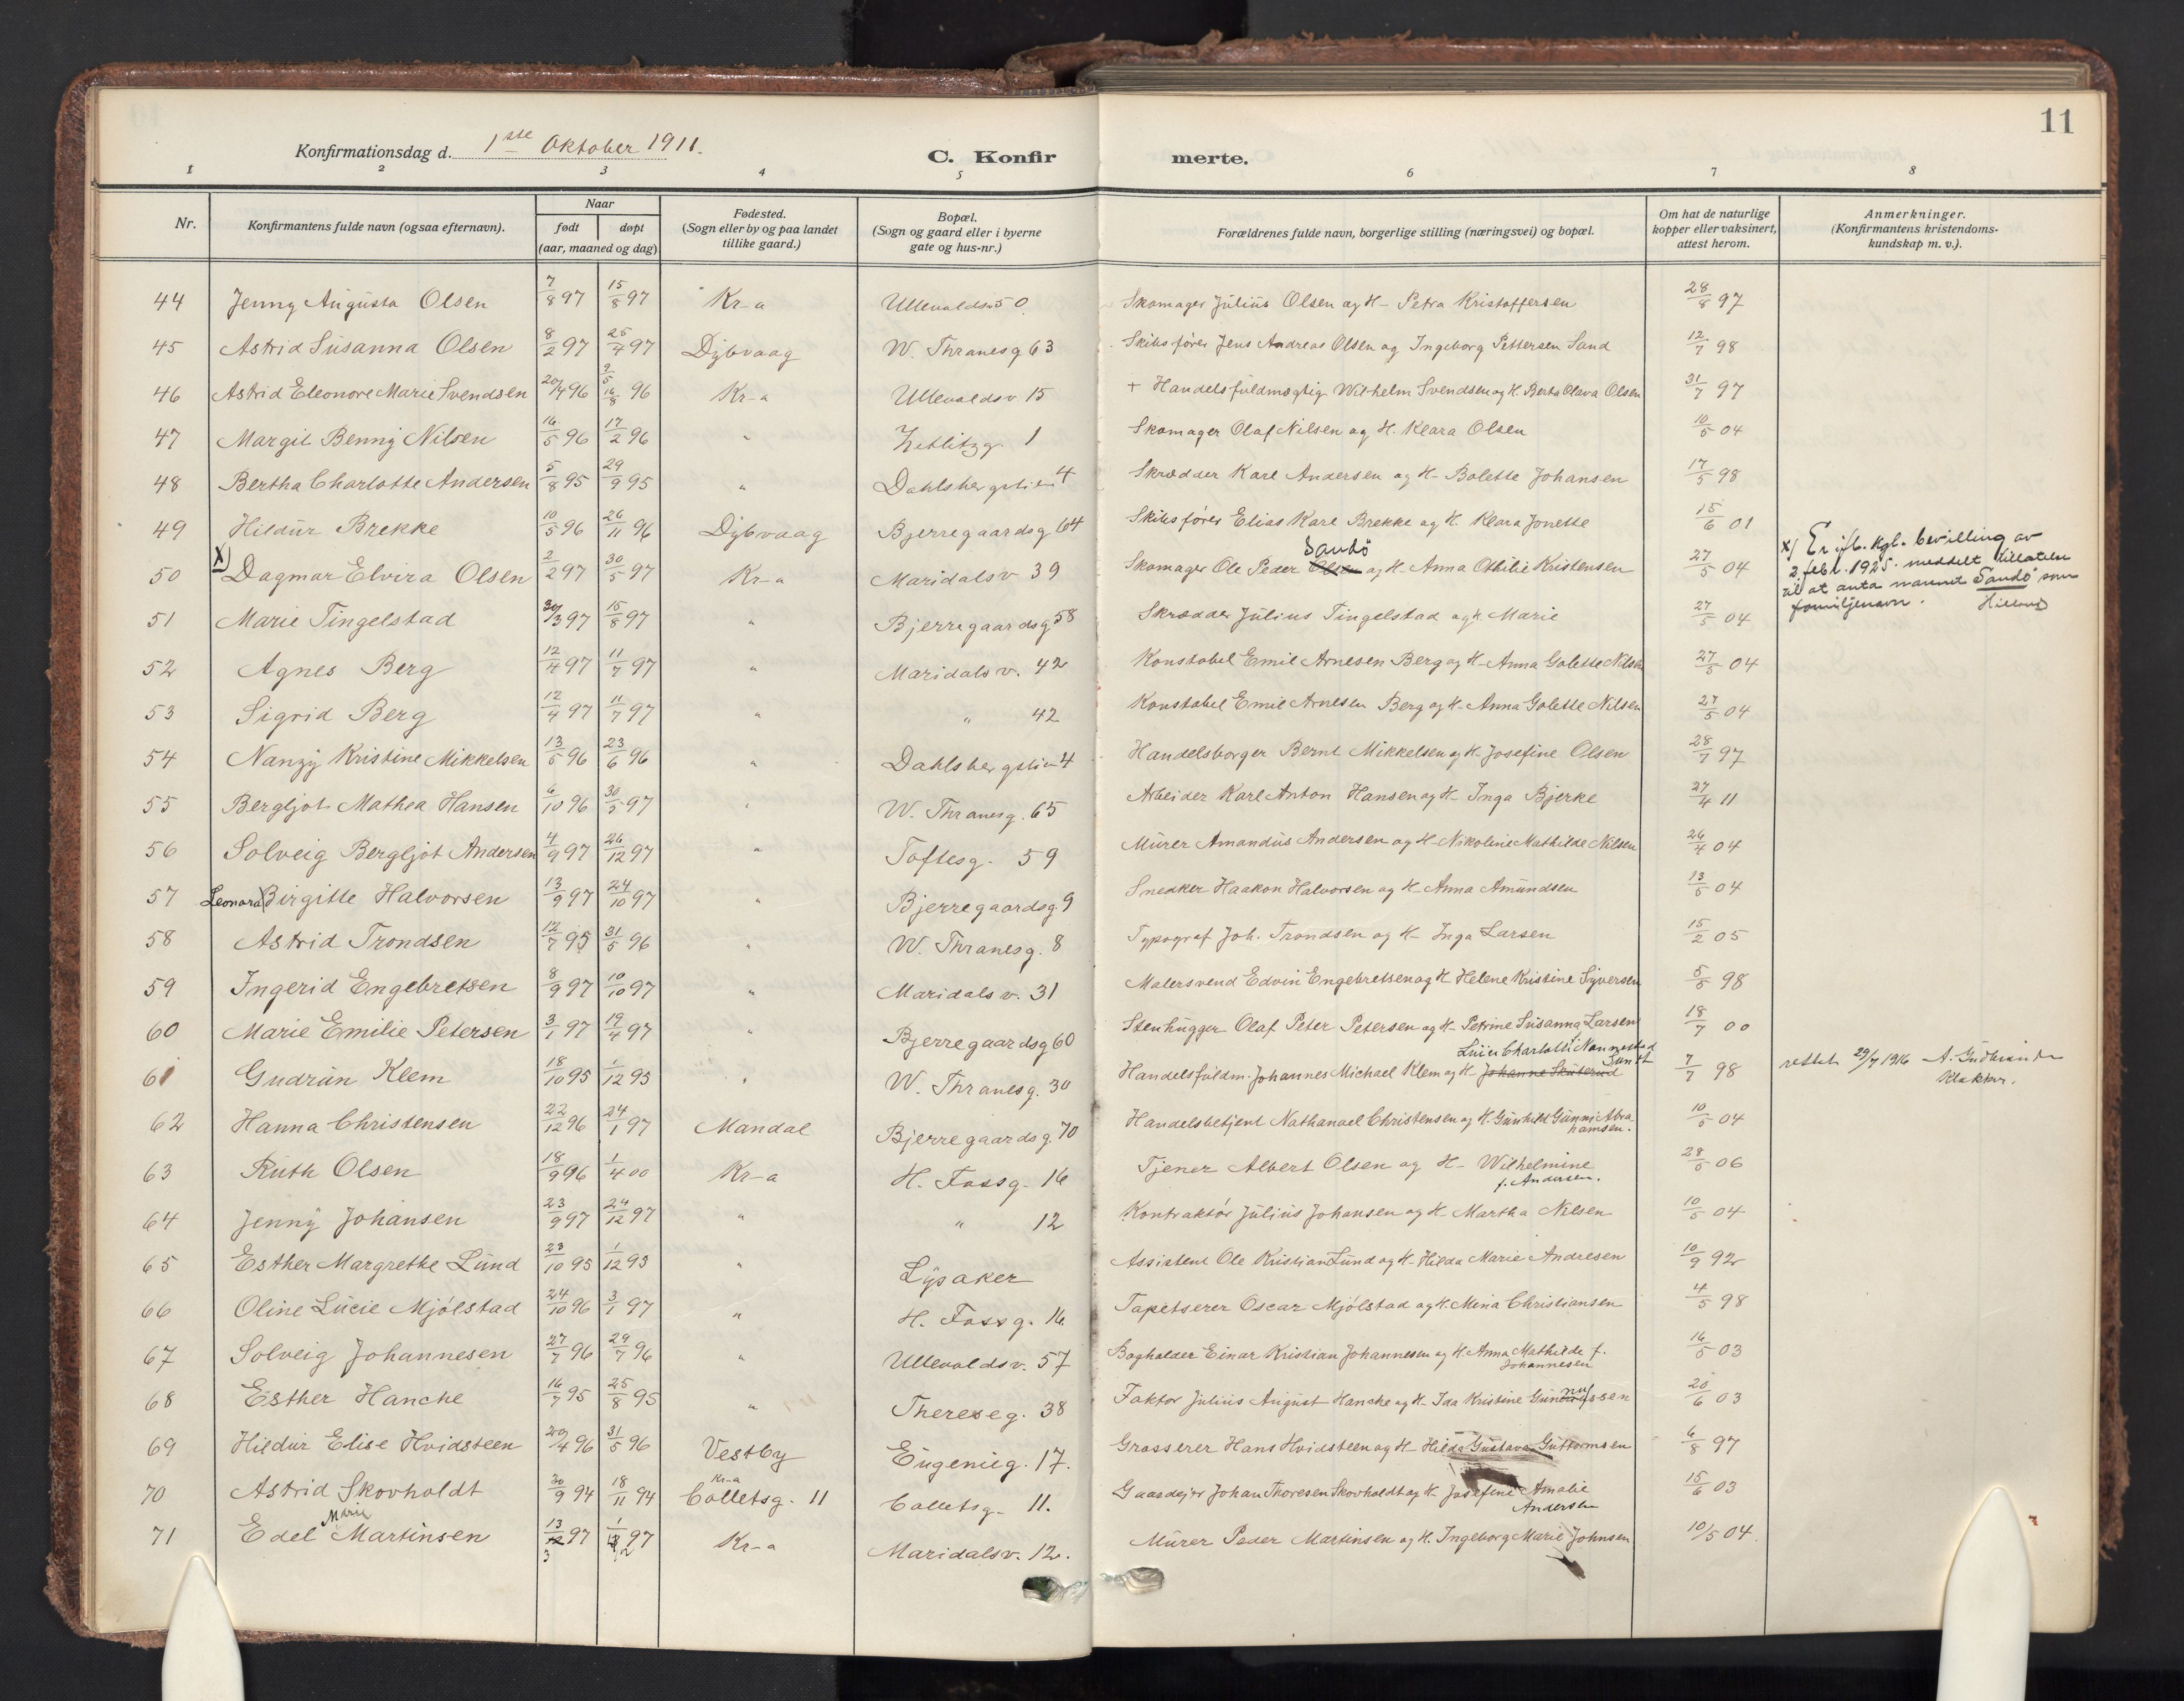 11
Konfirmationsdag d. 1ste Oktober 1911.
C. Konfirmerte.
1 2 3 4 5 6 7 8
Nr. | Konfirmantens fulde navn (ogsaa efternavn). | Naar født døpt (aar, maaned og dag) | Fødested. (Sogn eller by og paa landet tillike gaard.) | Bopæl. (Sogn og gaard eller i byerne gate og hus-nr.) | Forældrenes fulde navn, borgerlige stilling (næringsvei) og bopæl. | Om hat de naturlige kopper eller vaksinert, attest herom. | Anmerkninger. (Konfirmantens kristendoms-kundskap m. v.).
44 Jenny Augusta Olsen 7/8 97 15/8 97 Kr-a Ullevaldsv 50 Skomager Julius Olsen og H- Petra Kristoffersen 28/8 97
45 Astrid Susanna Olsen 8/2 97 25/4 97 Dybvaag W. Thranesg 63 Skibsfører Jens Andreas Olsen og Ingeborg Pettersen Sand 12/7 98
46 Astrid Eleonore Marie Svendsen 20/4 96 16/8 96 Kr-a Ullevaldsv 15 + Handelsfuldmægtig Wilhelm Svendsen og H. Berta Olava Olsen 31/7 97
47 Margit Benny Nilsen 16/5 96 17/2 96 " Zetlitzg. 1 Skomager Olaf Nilsen og H. Klara Olsen 10/5 04
48 Bertha Charlotte Andersen 5/8 95 29/9 95 " Dahlsbergstien 4 Skrædder Karl Andersen og H- Bolette Johansen 17/5 98
49 Hildur Brekke 10/5 96 26/11 96 Dybvaag Bjerregaardsg 64 Skibsfører Elias Karl Brekke og H. Klara Jonette 15/6 01
50 x) Dagmar Elvira Olsen 2/2 97 30/5 97 Kr-a Maridalsv 39 Skomager Ole Peder Olsen Sandö og H- Anna Othilie Kristensen 27/5 04 x) Er ifl. kgl. bevilling av 2. febr. 1925. meddelt tillatelse til at anta navnet Sandö som familjenavn.
51 Marie Tingelstad 30/3 97 15/8 97 " Bjerregaardsg 58 Skrædder Julius Tingelstad og H. Marie 27/5 04
52 Agnes Berg 12/4 97 11/7 97 " Maridalsv. 42 Konstabel Emil Arnesen Berg og H- Anna Golette Nilsen 27/5 04
53 Sigrid Berg 12/4 97 11/7 97 " " 42 Konstabel Emil Arnesen Berg og H- Anna Golette Nilsen 27/5 04
54 Nanzy Kristine Mikkelsen 13/5 96 23/6 96 " Dahlsbergstien 4 Handelsborger Bernt Mikkelsen og H- Josefine Olsen 28/7 97
55 Bergljot Mathea Hansen 6/10 96 30/5 97 " W. Thranesg. 65 Arbeider Karl Anton Hansen og H- Inga Bjerke 27/4 11
56 Solveig Bergljot Andersen 4/9 97 26/12 97 " Toftesg. 59 Murer Amandus Andersen og H- Nikoline Mathilde Nilsen 26/4 04
57 Leonora Birgitte Halvorsen 13/9 97 24/10 97 " Bjerregaardsg. 9 Snedker Haakon Halvorsen og H- Anna Amundsen 13/5 04
58 Astrid Trondsen 12/7 95 31/5 96 " W. Thranesg. 8 Typograf Joh. Trondsen og H- Inga Larsen 15/2 05
59 Ingerid Engebretsen 8/9 97 10/10 97 " Maridalsv. 31 Malersvend Edvin Engebretsen og H- Helene Kristine Syversen 5/5 98
60 Marie Emilie Petersen 3/1 97 19/4 97 " Bjerregaardsg 60 Stenhugger Olaf Peter Petersen og H- Petrine Susanna Larsen 18/7 00
61 Gudrun Klem 18/10 95 1/12 95 " W. Thranesg. 30 Handelsfuldm. Johannes Michael Klem og H- Johanne Skuterud 7/7 98 rettet 29/7 1916
62 Hanna Christensen 22/12 96 24/1 97 Mandal Bjerregaardsg. 70 Handelsbetjent Nathanael Christensen og H. Gunhild Gunni Abrahamsen. 10/5 04
63 Ruth Olsen 18/9 96 1/4 00 Kr-a H. Fossg. 16 Tjener Albert Olsen og H- Wilhelmine f. Andersen. 28/5 06
64 Jenny Johansen 23/9 97 24/12 97 " " 12 Kontraktør Julius Johansen og H- Martha Nilsen 10/5 04
65 Esther Margrethe Lund 23/10 95 1/12 95 " Lysaker Assistent Ole Kristian Lund og H- Hilda Marie Andresen 10/9 92
66 Oline Lucie Mjölstad 24/10 96 3/1 97 " H. Fossg. 16 Tapetserer Oscar Mjölstad og H. Mina Christiansen 4/5 98
67 Solveig Johannesen 27/7 96 29/7 96 " Ullevaldsv. 57 Bogholder Einar Kristian Johannesen og H. Anna Mathilde f. Johannesen 16/5 03
68 Esther Hanche 16/7 95 25/8 95 " Thereseg. 38 Faktor Julius August Hanche og H- Ida Kristine Gunnufssen 20/6 03
69 Hildur Elise Hvidsteen 20/4 96 31/5 96 Vestby Eugenieg. 17. Grosserer Hans Hvidsteen og H- Hilda Gustava Guttormsen 6/8 97
70 Astrid Skovholdt 30/9 94 18/11 94 Kr-a Colletsg. 11 Colletsg. 11. Gaardejer Johan Thoresen Skovholdt og H. Josefine Amalie Andersen 15/6 03
71 Edel Marie Martinsen 13/3 97 1/12 97 Kr-a Maridalsv. 12. Murer Peder Martinsen og H. Ingeborg Marie Johnsen 10/5 04.